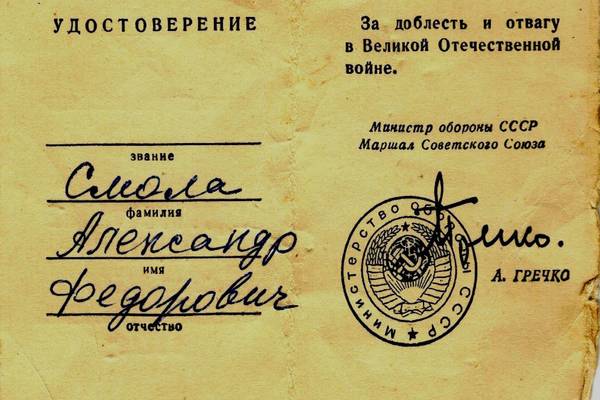 УДОСТОВЕРЕНИЕ
звание
Смола
фамилия
Александр
имя
Федорович
отчество
За доблесть и отвагу
в Великой Отечественной
войне.
Министр обороны СССР
Маршал Советского Союза
Министерство обороны СССР
А. ГРЕЧКО